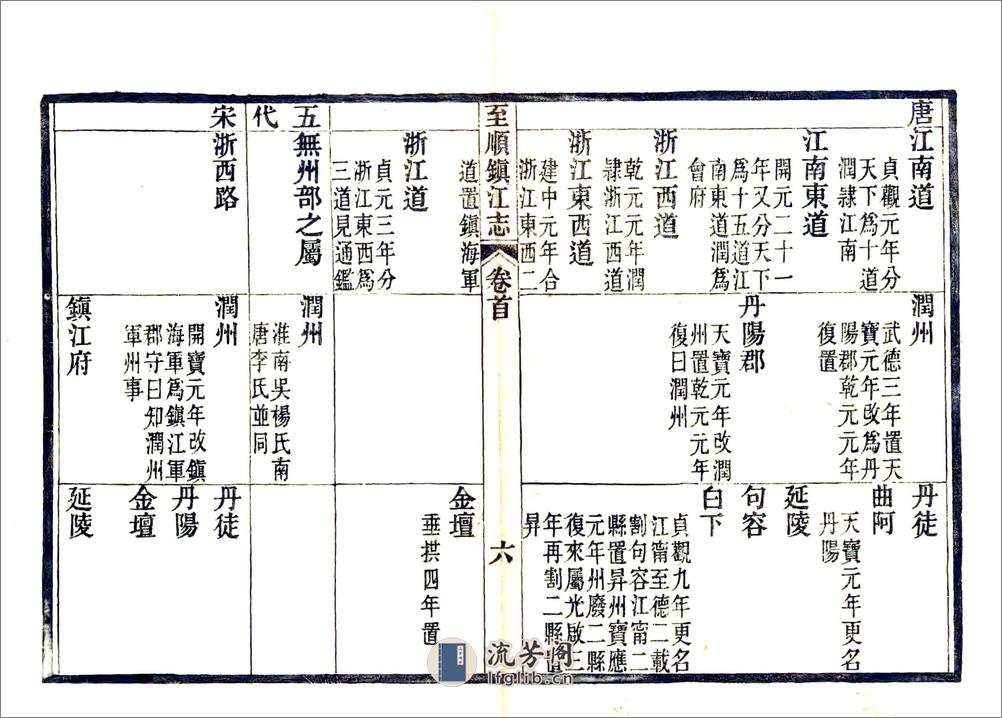 唐
江南道
貞觀元年分
天下爲十道
潤隷江南
江南東道
開元二十一
年又分天下
爲十五道江
南東道潤爲
會府
浙江西道
乾元元年潤
隷浙江西道
浙江東西道
建中元年合
浙江東西二
道置鎮海軍
浙江道
貞元三年分
浙江東西爲
三道見通鑑
潤州
武德三年置天
寶元年改爲丹
陽郡乾元元年
復置
丹陽郡
天寶元年改潤
州置乾元元年
復曰潤州
丹徒
曲阿
天寶元年更名
丹陽
延陵
句容
白下
貞觀九年更名
江甯至德二載
割句容江甯二
縣置昇州寶應
元年州廢二縣
復來屬光啟三
年再割二縣置
昇
金壇
垂拱四年置
至順鎮江志
卷首
六
五代
無州部之屬
潤州
淮南吳楊氏南
唐李氏並同
宋
浙西路
潤州
開寶元年改鎮
海軍爲鎮江軍
郡守曰知潤州
軍州事
鎮江府
丹徒
丹陽
金壇
延陵
流芳阁
lfglib.cn